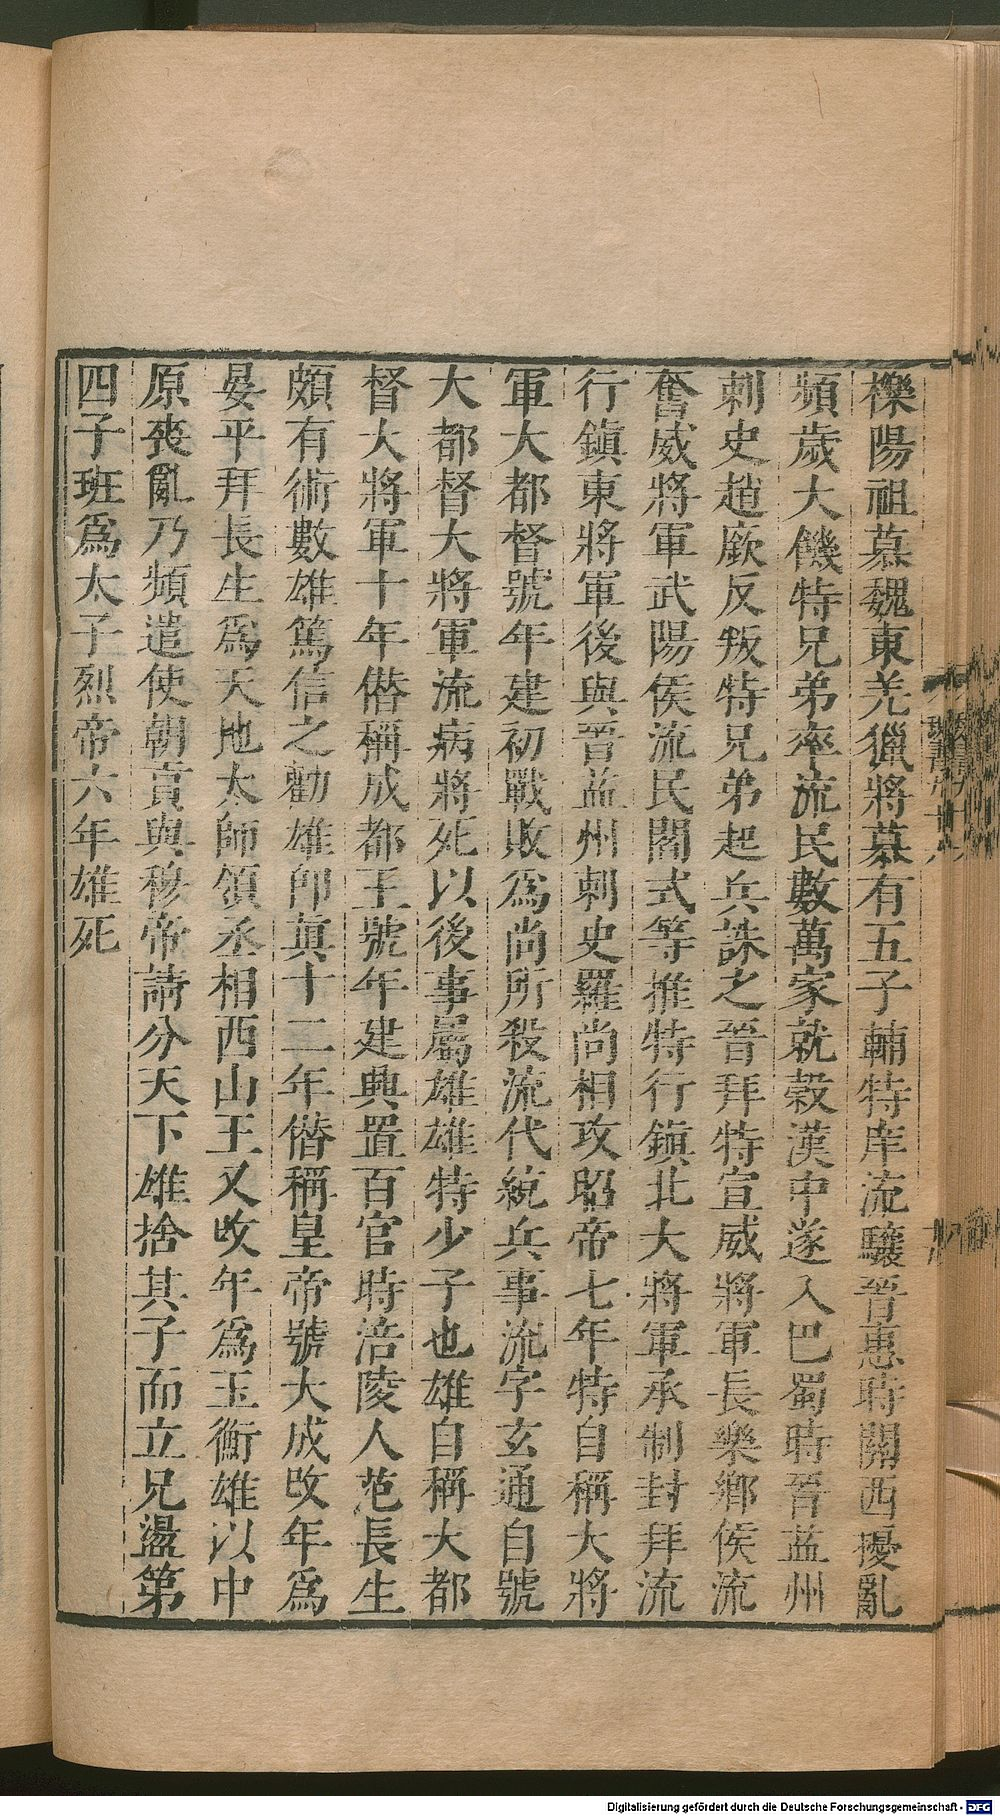 櫟陽祖慕魏東羌獵將慕有五子輔特庠流驤晉惠時關西擾亂
頻歲大饑特兄弟率流民數萬家就穀漢中遂入巴蜀時晉益州
刺史趙廞反叛特兄弟起兵誅之晉拜特宣威將軍長樂鄉侯流
奮威將軍武陽侯流民閻式等推特行鎮北大將軍承制封拜流
行鎮東將軍後與晉益州刺史羅尚相攻昭帝七年特自稱大將
軍大都督號年建初戰敗爲尚所殺流代統兵事流字玄通自號
大都督大將軍流病將死以後事屬雄雄特少子也雄自稱大都
督大將軍十年僭稱成都王號年建興置百官時涪陵人范長生
頗有術數雄篤信之勸雄卽真十二年僭稱皇帝號大成改年爲
晏平拜長生爲天地太師領丞相西山王又改年爲玉衡雄以中
原喪亂乃頻遣使朝貢與穆帝請分天下雄捨其子而立兄盪第
四子班爲太子烈帝六年雄死
Digitalisierung gefördert durch die Deutsche Forschungsgemeinschaft - DFG